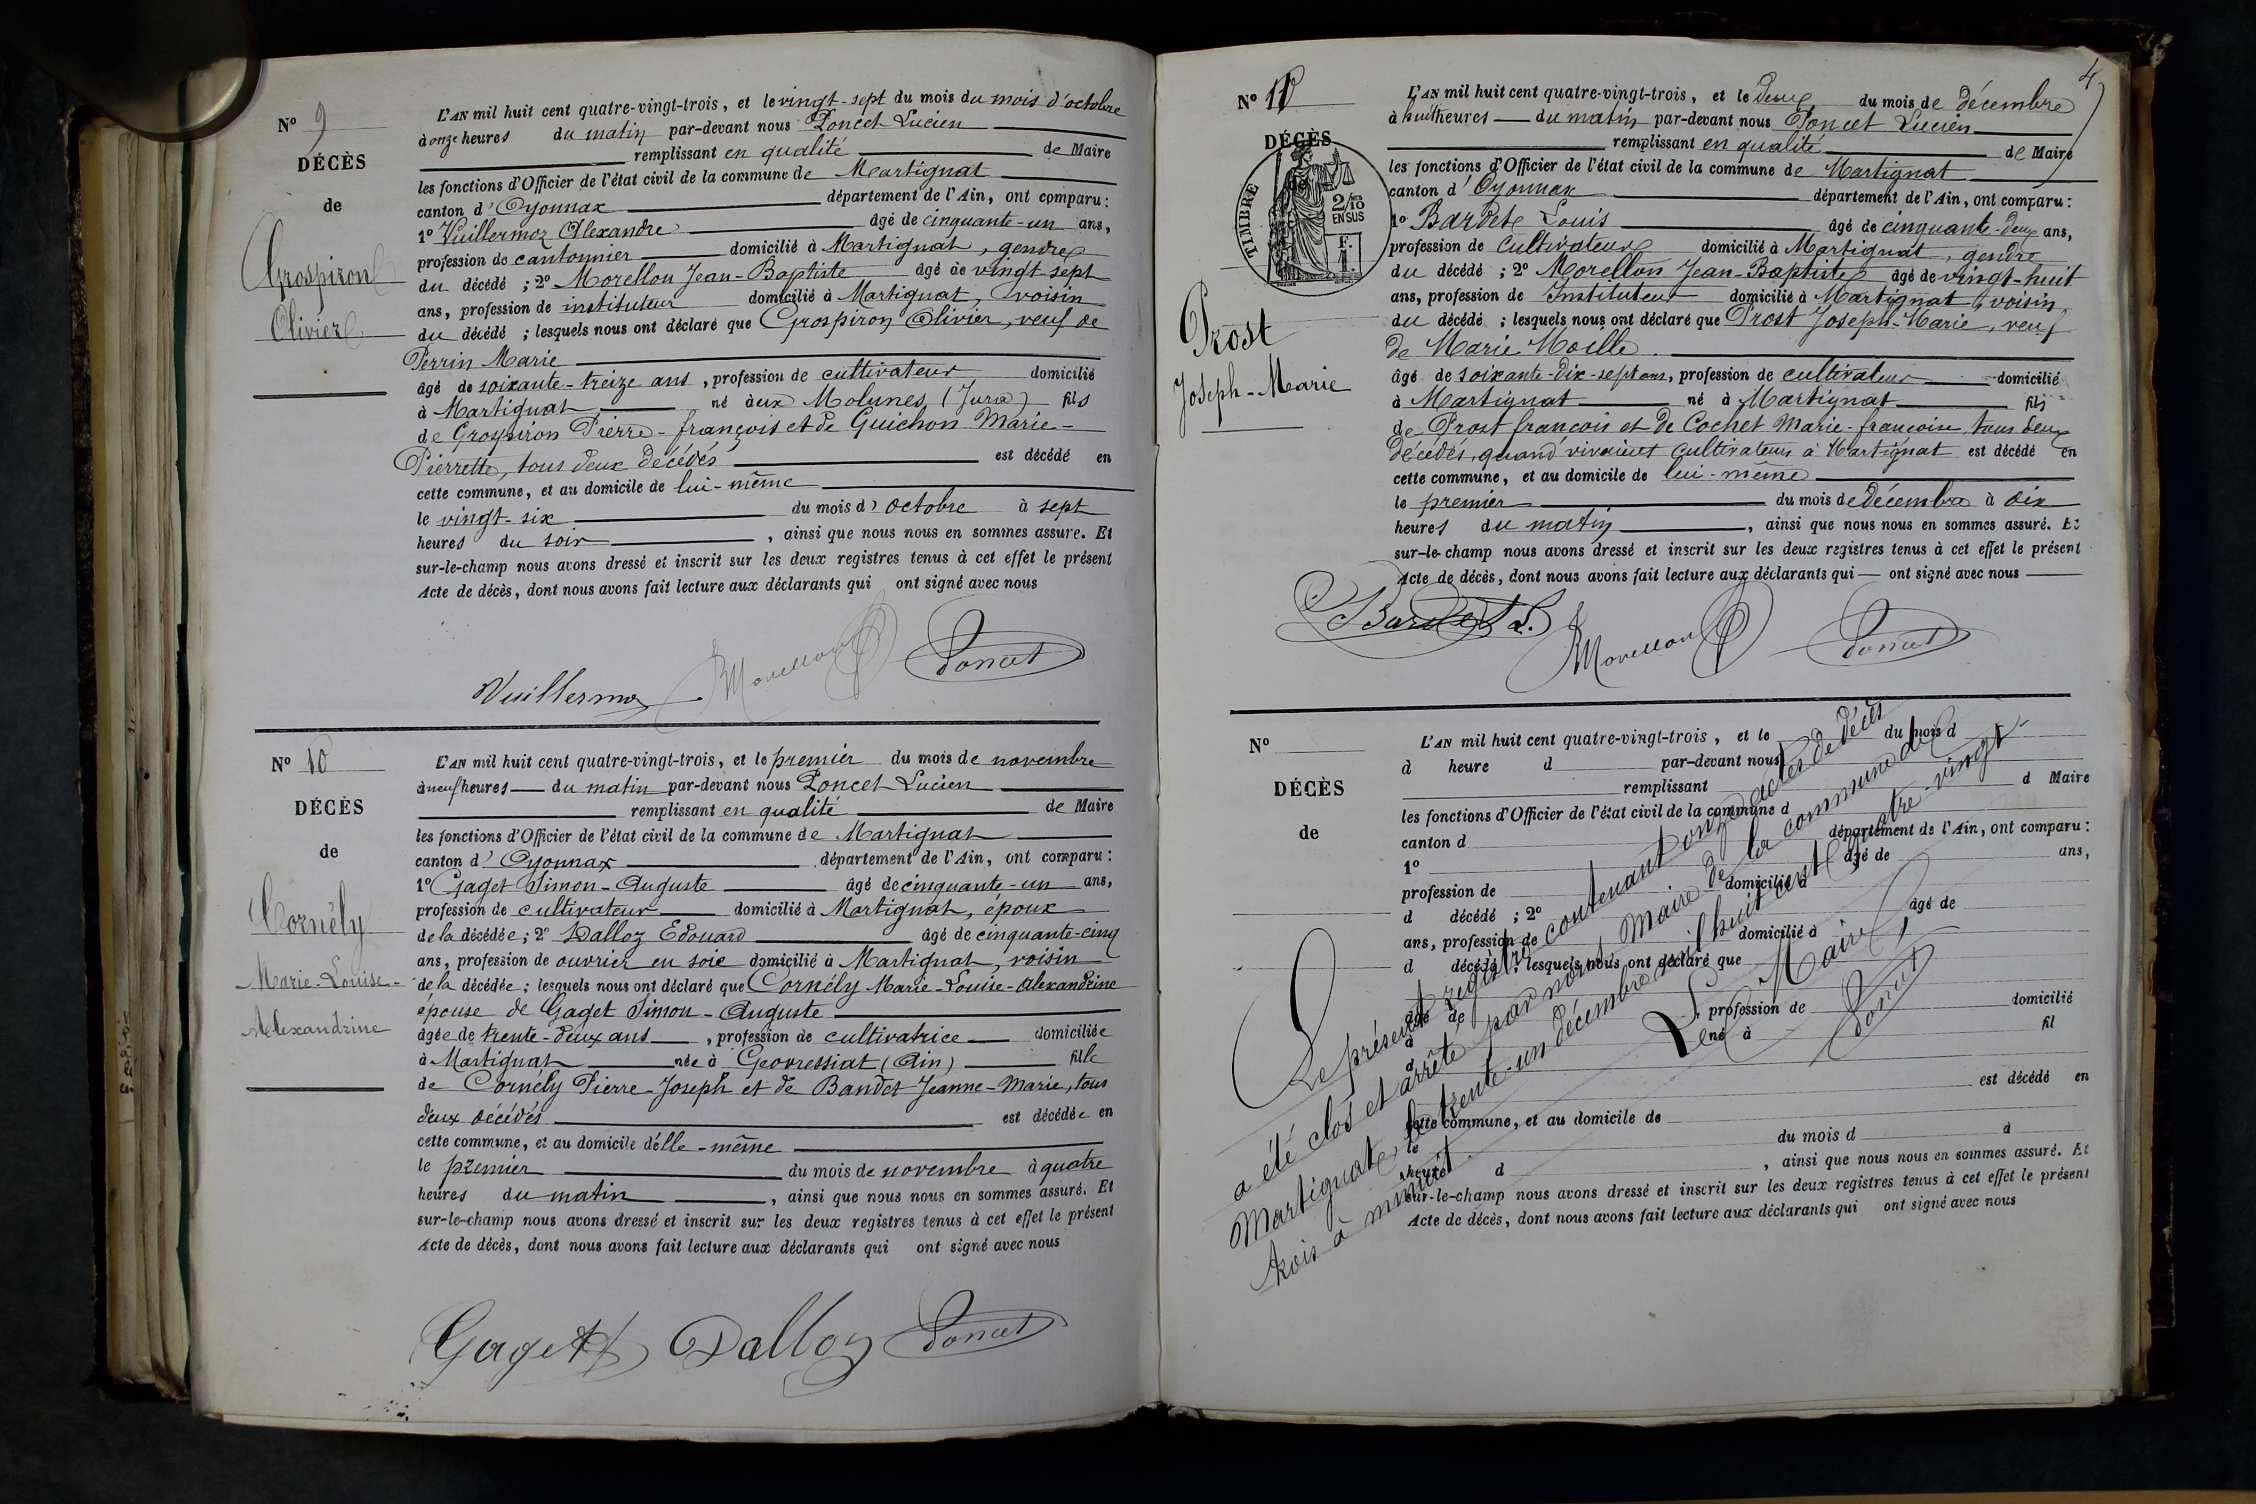 Nº 9
DÉCÈS
de
Grospiron
Olivier
L'AN mil huit cent quatre-vingt-trois, et le vingt-sept du mois du mois d'octobre
à onze heures du matin par-devant nous Poncet Lucien
remplissant en qualité de Maire
les fonctions d'Officier de l'état civil de la commune de Martignat
canton d'Oyonnax département de l'Ain, ont comparu :
1º Vuillermoz Alexandre âgé de cinquante-un ans,
profession de cantonnier domicilié à Martignat, gendre
du décédé ; 2º Morellon Jean-Baptiste âgé de vingt-sept
ans, profession de instituteur domicilié à Martignat, voisin
du décédé ; lesquels nous ont déclaré que Grospiron Olivier, veuf de
Perrin Marie
âgé de soixante-treize ans, profession de cultivateur domicilié
à Martignat né à aux Molunes (Jura) fils
de Grospiron Pierre-françois et de Guichon Marie-
Pierrette, tous deux décédés est décédé en
cette commune, et au domicile de lui-même
le vingt-six du mois d'octobre à sept
heures du soir, ainsi que nous nous en sommes assuré. Et
sur-le-champ nous avons dressé et inscrit sur les deux registres tenus à cet effet le présent
Acte de décès, dont nous avons fait lecture aux déclarants qui ont signé avec nous
Vuillermoz Morellon Poncet
Nº 10
DÉCÈS
de
Cornély
Marie-Louise-
Alexandrine
L'AN mil huit cent quatre-vingt-trois, et le premier du mois de novembre
à neuf heures du matin par-devant nous Poncet Lucien
remplissant en qualité de Maire
les fonctions d'Officier de l'état civil de la commune de Martignat
canton d'Oyonnax département de l'Ain, ont comparu :
1º Gaget Simon-Auguste âgé de cinquante-un ans,
profession de cultivateur domicilié à Martignat, époux
de la décédée ; 2º Dalloz Edouard âgé de cinquante-cinq
ans, profession de ouvrier en soie domicilié à Martignat, voisin
de la décédée ; lesquels nous ont déclaré que Cornély Marie-Louise-Alexandrine
épouse de Gaget Simon-Auguste
âgée de trente-deux ans, profession de cultivatrice domiciliée
à Martignat née à Geovressiat (Ain) fille
de Cornély Pierre-Joseph et de Bandet Jeanne-Marie, tous
deux décédés est décédée en
cette commune, et au domicile d'elle-même
le premier du mois de novembre à quatre
heures du matin, ainsi que nous nous en sommes assuré. Et
sur-le-champ nous avons dressé et inscrit sur les deux registres tenus à cet effet le présent
Acte de décès, dont nous avons fait lecture aux déclarants qui ont signé avec nous
Gaget Dalloz Poncet
4
Nº 11
DÉCÈS
de
TIMBRE
2/10
EN SUS
F.
1.
Prost
Joseph-Marie
L'AN mil huit cent quatre-vingt-trois, et le deux du mois de décembre
à huit heures du matin par-devant nous Poncet Lucien
remplissant en qualité de Maire
les fonctions d'Officier de l'état civil de la commune de Martignat
canton d'Oyonnax département de l'Ain, ont comparu :
1º Bardet Louis âgé de cinquante-deux ans,
profession de cultivateur domicilié à Martignat, gendre
du décédé ; 2º Morellon Jean-Baptiste âgé de vingt-huit
ans, profession de Instituteur domicilié à Martignat, voisin
du décédé ; lesquels nous ont déclaré que Prost Joseph-Marie, veuf
de Marie Moille
âgé de soixante-dix-sept ans, profession de cultivateur domicilié
à Martignat né à Martignat fils
de Prost françois et de Cochet Marie-françoise, tous deux
décédés, quand vivaient cultivateurs à Martignat est décédé en
cette commune, et au domicile de lui-même
le premier du mois de décembre à dix
heures du matin, ainsi que nous nous en sommes assuré. Et
sur-le-champ nous avons dressé et inscrit sur les deux registres tenus à cet effet le présent
Acte de décès, dont nous avons fait lecture aux déclarants qui ont signé avec nous
Bardet L. Morellon Poncet
Nº
DÉCÈS
de
L'AN mil huit cent quatre-vingt-trois, et le du mois d
à heure d par-devant nous
remplissant d Maire
les fonctions d'Officier de l'état civil de la commune d
canton d département de l'Ain, ont comparu :
1º âgé de ans,
profession de domicilié à
d décédé ; 2º âgé de
ans, profession de domicilié à
d décédé ; lesquels nous ont déclaré que
âgé de , profession de domicilié
à né à fil
d
est décédé en
cette commune, et au domicile de
le du mois d à
heure d , ainsi que nous nous en sommes assuré. Et
sur-le-champ nous avons dressé et inscrit sur les deux registres tenus à cet effet le présent
Acte de décès, dont nous avons fait lecture aux déclarants qui ont signé avec nous
Le présent registre contenant onze actes de décès
a été clos et arrêté par nous, Maire de la commune de
Martignat, le trente-un décembre mil huit cent quatre-vingt-
trois à minuit.
Le Maire,
Poncet